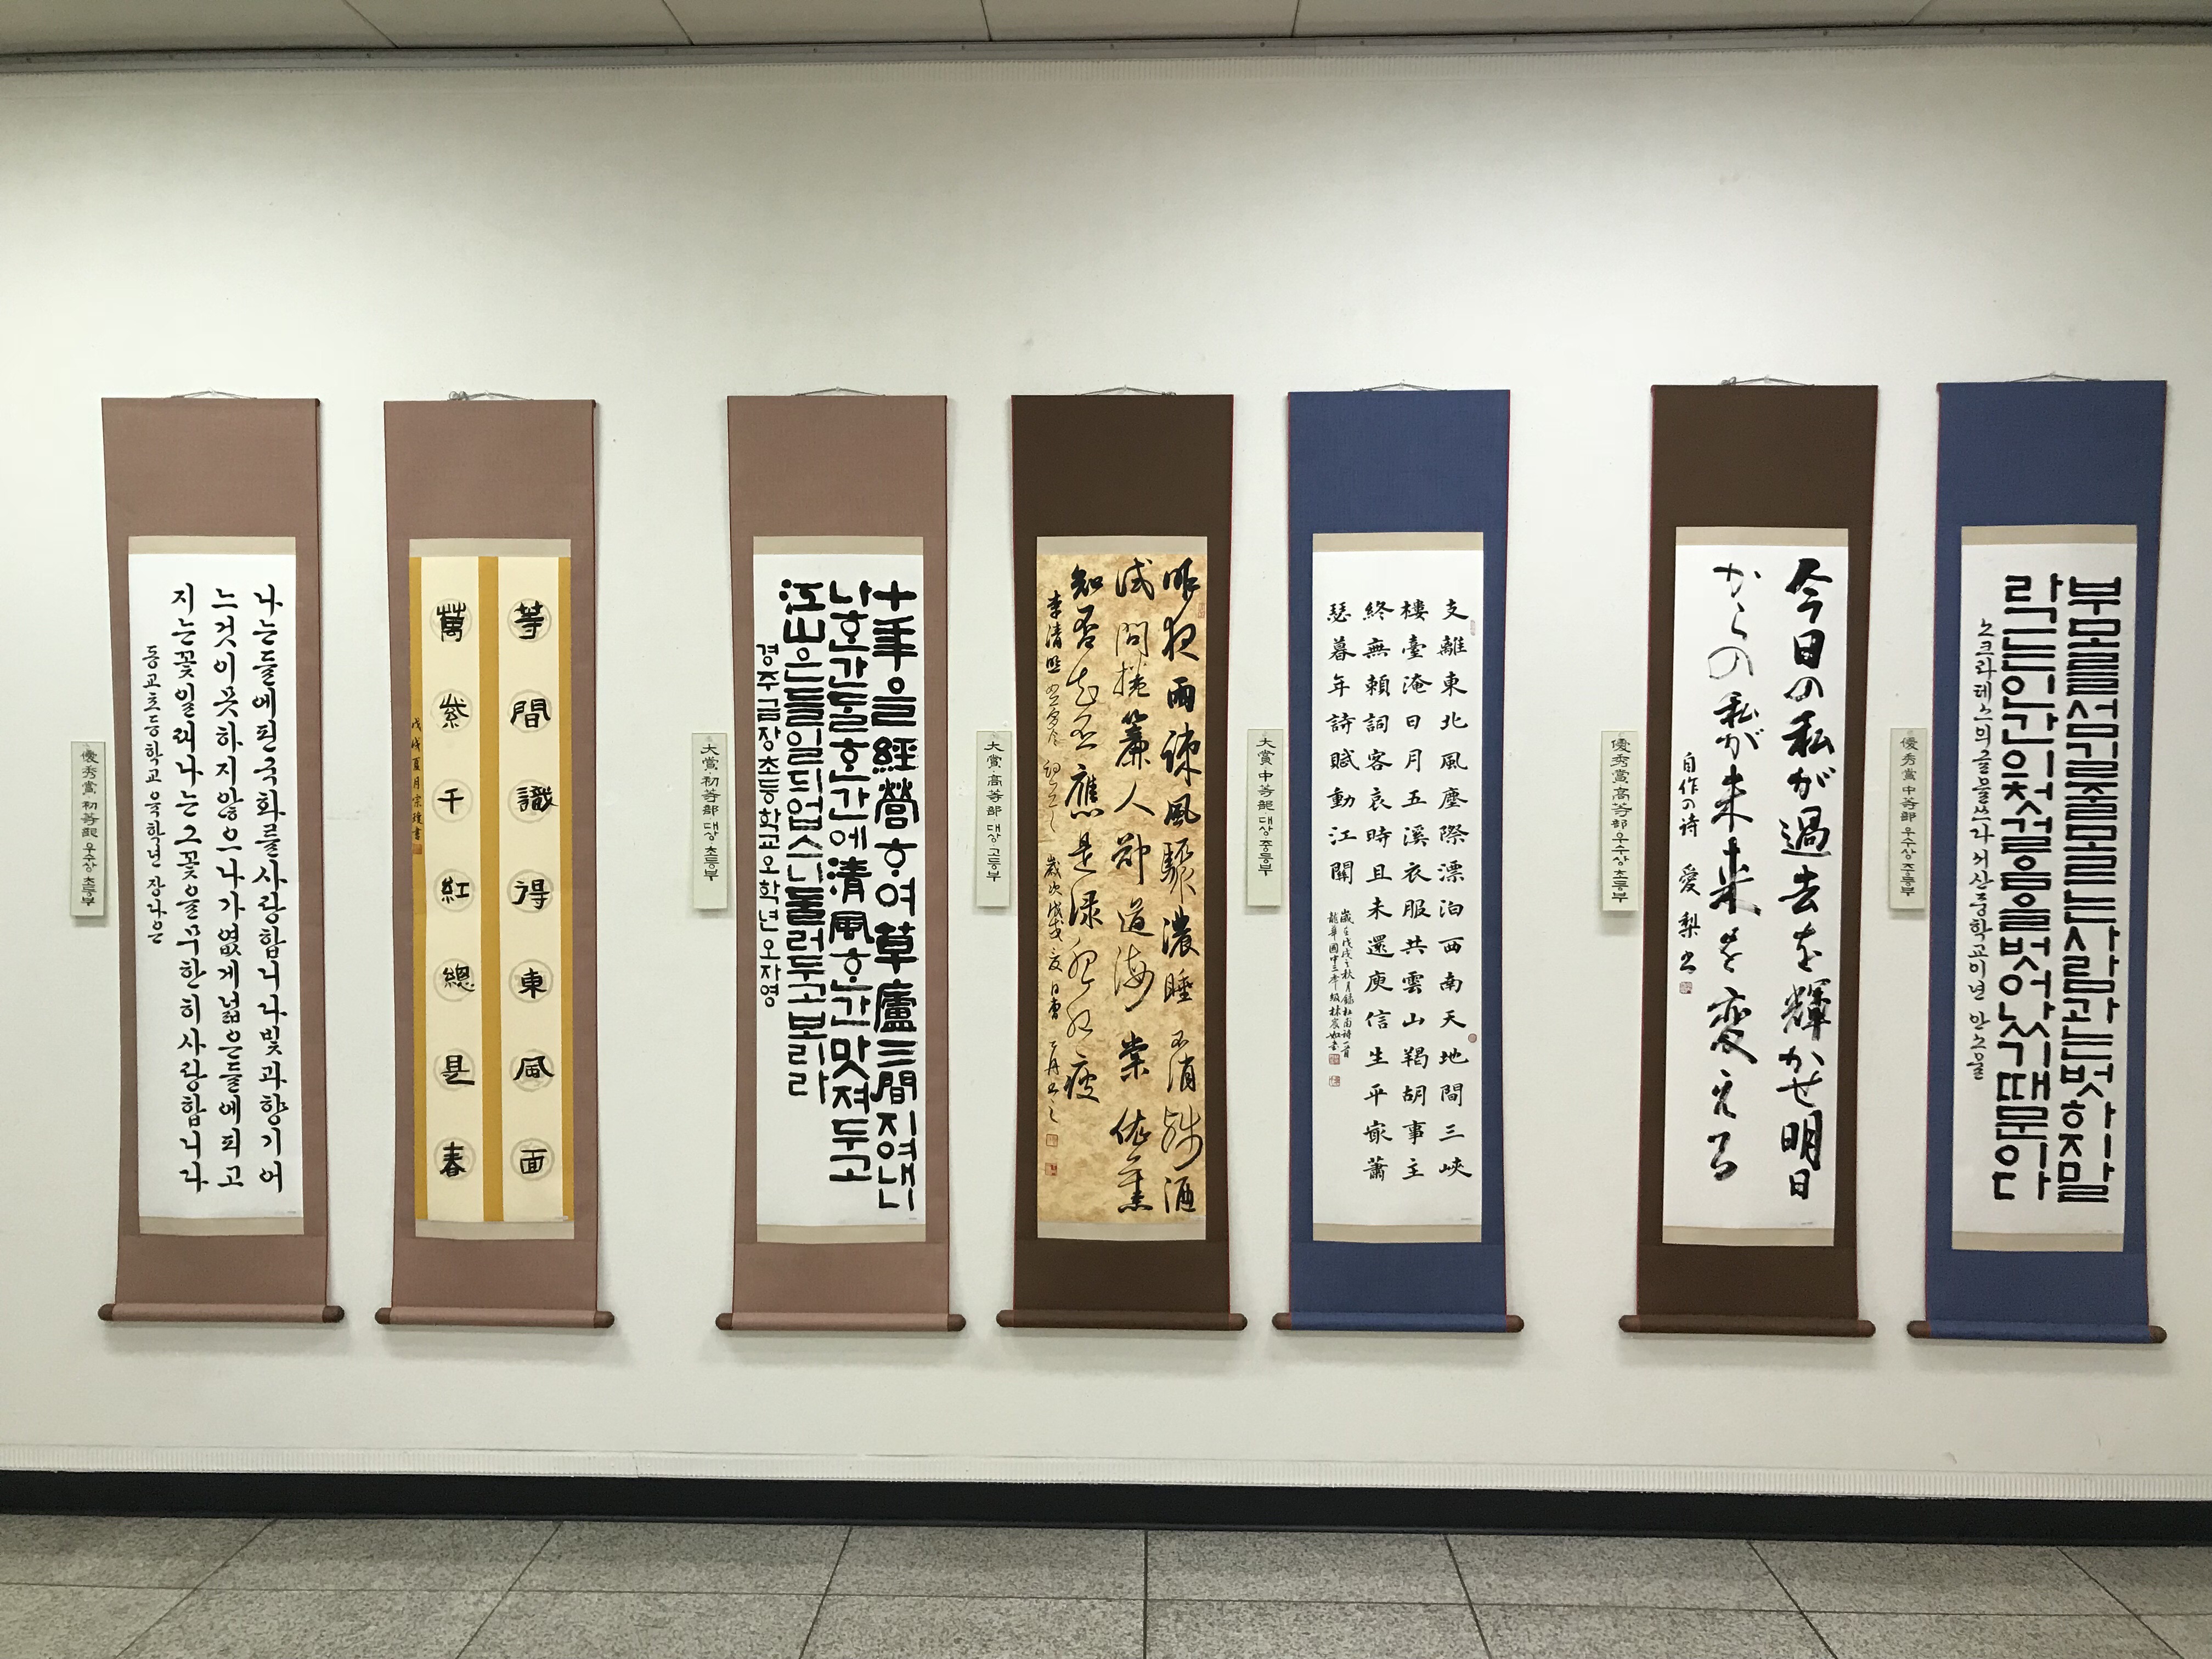 優秀賞 初等部 우수상 초등부
나는들에핀국화를사랑합니다빛과향기어
느것이못하지않으나가엾게넓은들에피고
지는꽃일래나는그꽃을무한히사랑합니다
동교초등학교 육학년 장나은
等間識得東風面
萬紫千紅總是春
戊戌夏月宗
書
大賞 初等部 대상 초등부
十年을經營ᄒᆞ여草廬三間지여낸니
나ᄒᆞᆫ간ᄃᆞᆯᄒᆞᆫ간에淸風ᄒᆞᆫ간맛져두고
江山은들일듸업스니둘러두고보리라
경주금장초등학교오학년오자영
大賞 高等部 대상 고등부
昨夜雨疎風驟濃睡不消殘酒
試問捲簾人郤道海棠依舊
知否知否應是綠肥紅瘦
李清照
歲次戊戌夏日
大賞 中等部 대상 중등부
支離東北風塵際漂泊西南天地間三峽
樓臺淹日月五溪衣服共雲山羯胡事主
終無賴詞客哀時且未還庾信生平最蕭
瑟暮年詩賦動江關
優秀賞 高等部 우수상 고등부
今日の私が過去を輝かせ明日
からの私が未来を変える
自作の詩 愛梨書
優秀賞 中等部 우수상 중등부
부모를섬길줄모르는사람과는벗하지말
라그는인간의첫걸음을벗어났기때문이다
소크라테스의글을쓰다 서산중학교이년 안소율